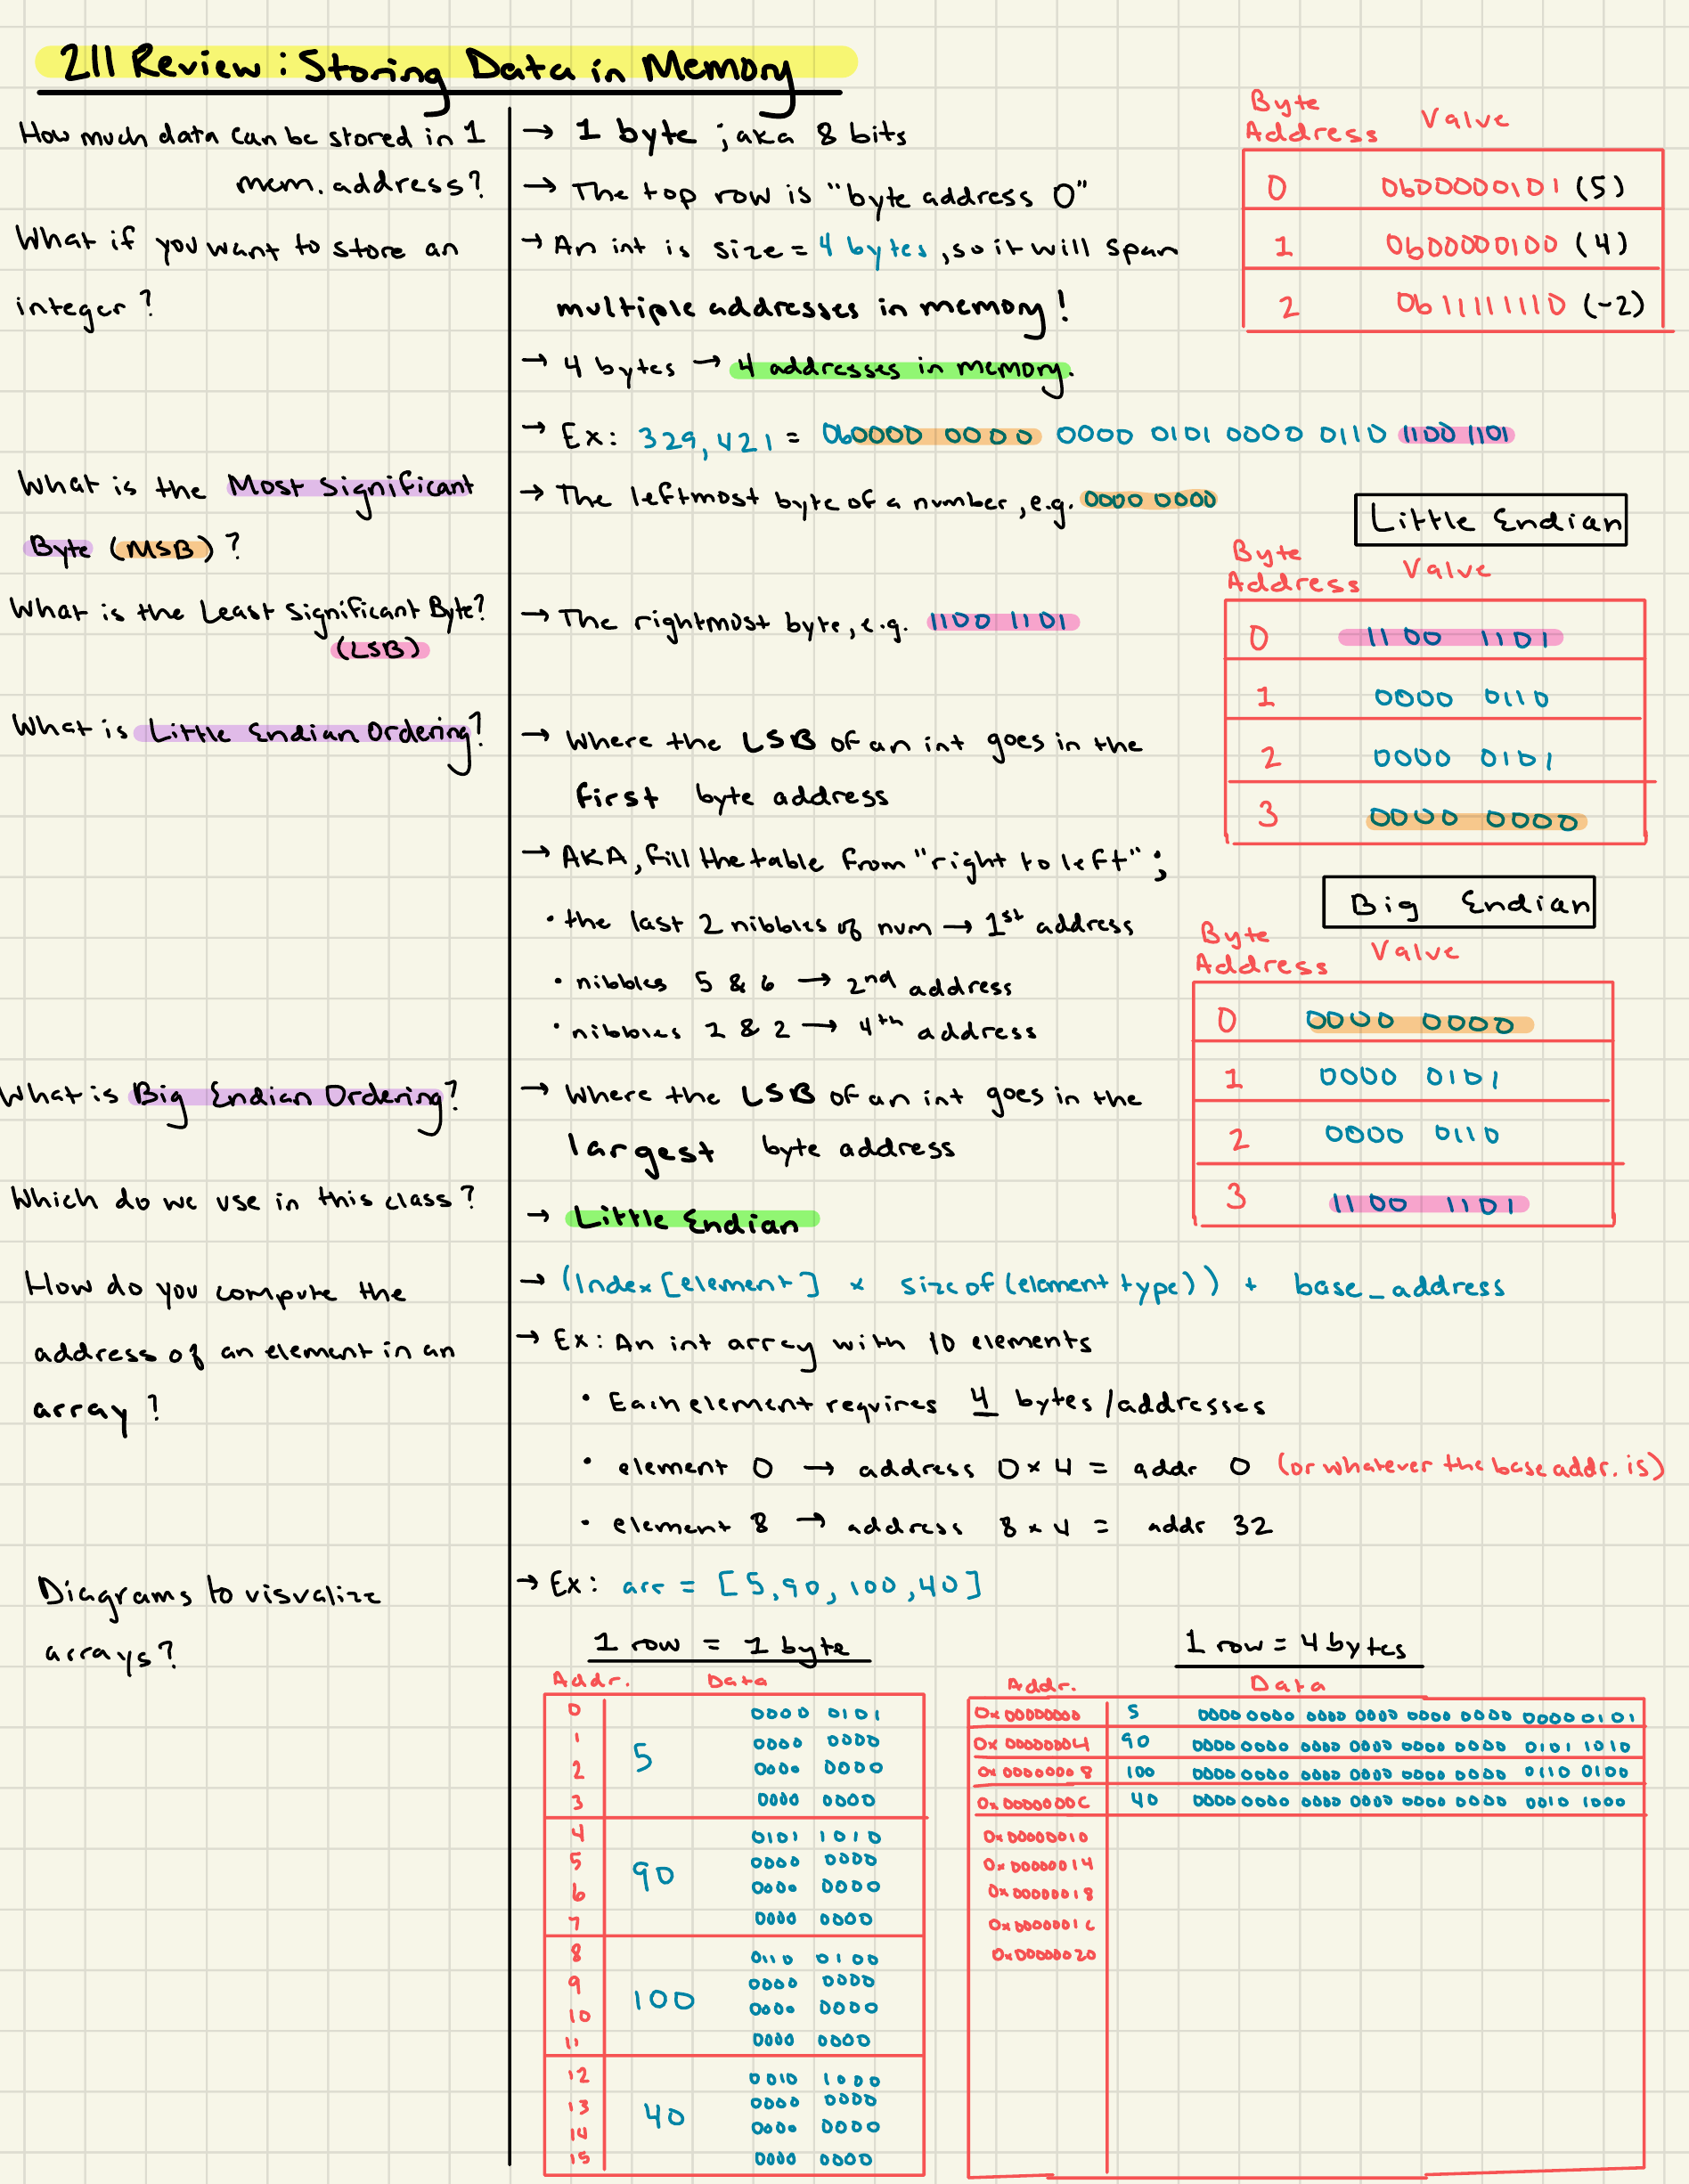 211 Review: Storing Data in Memory
How much data can be stored in 1
mem. address?
→ 1 byte ; aka 8 bits
→ The top row is "byte address 0"
Byte
Address Value
0 0b00000101 (5)
1 0b00000100 (4)
2 0b11111110 (-2)
What if you want to store an
integer?
→ An int is size = 4 bytes, so it will span
multiple addresses in memory!
→ 4 bytes → 4 addresses in memory.
→ Ex: 329,421 = 0b0000 0000 0000 0101 0000 0110 1100 1101
What is the Most Significant
Byte (MSB)?
→ The leftmost byte of a number, e.g. 0000 0000
What is the Least Significant Byte?
(LSB)
→ The rightmost byte, e.g. 1100 1101
Little Endian
Byte
Address Value
0 1100 1101
1 0000 0110
2 0000 0101
3 0000 0000
What is Little Endian Ordering?
→ Where the LSB of an int goes in the
first byte address
→ AKA, fill the table from "right to left";
• the last 2 nibbles of num → 1st address
• nibbles 5 & 6 → 2nd address
• nibbles 1 & 2 → 4th address
Big Endian
Byte
Address Value
0 0000 0000
1 0000 0101
2 0000 0110
3 1100 1101
What is Big Endian Ordering?
→ Where the LSB of an int goes in the
largest byte address
Which do we use in this class?
→ Little Endian
How do you compute the
address of an element in an
array?
→ (Index[element] × sizeof(element type)) + base_address
→ Ex: An int array with 10 elements
• Each element requires 4 bytes/addresses
• element 0 → address 0×4 = addr 0 (or whatever the base addr. is)
• element 8 → address 8×4 = addr 32
Diagrams to visualize
arrays?
→ Ex: arr = [5,90,100,40]
1 row = 1 byte
Addr. Data
0 0000 0101
1 0000 0000
5
2 0000 0000
3 0000 0000
4 0101 1010
5 0000 0000
90
6 0000 0000
7 0000 0000
8 0110 0100
9 0000 0000
100
10 0000 0000
11 0000 0000
12 0010 1000
13 0000 0000
40
14 0000 0000
15 0000 0000
1 row = 4 bytes
Addr. Data
0x00000000 5 0000 0000 0000 0000 0000 0000 0000 0101
0x00000004 90 0000 0000 0000 0000 0000 0000 0101 1010
0x00000008 100 0000 0000 0000 0000 0000 0000 0110 0100
0x0000000C 40 0000 0000 0000 0000 0000 0000 0010 1000
0x00000010
0x00000014
0x00000018
0x0000001C
0x00000020